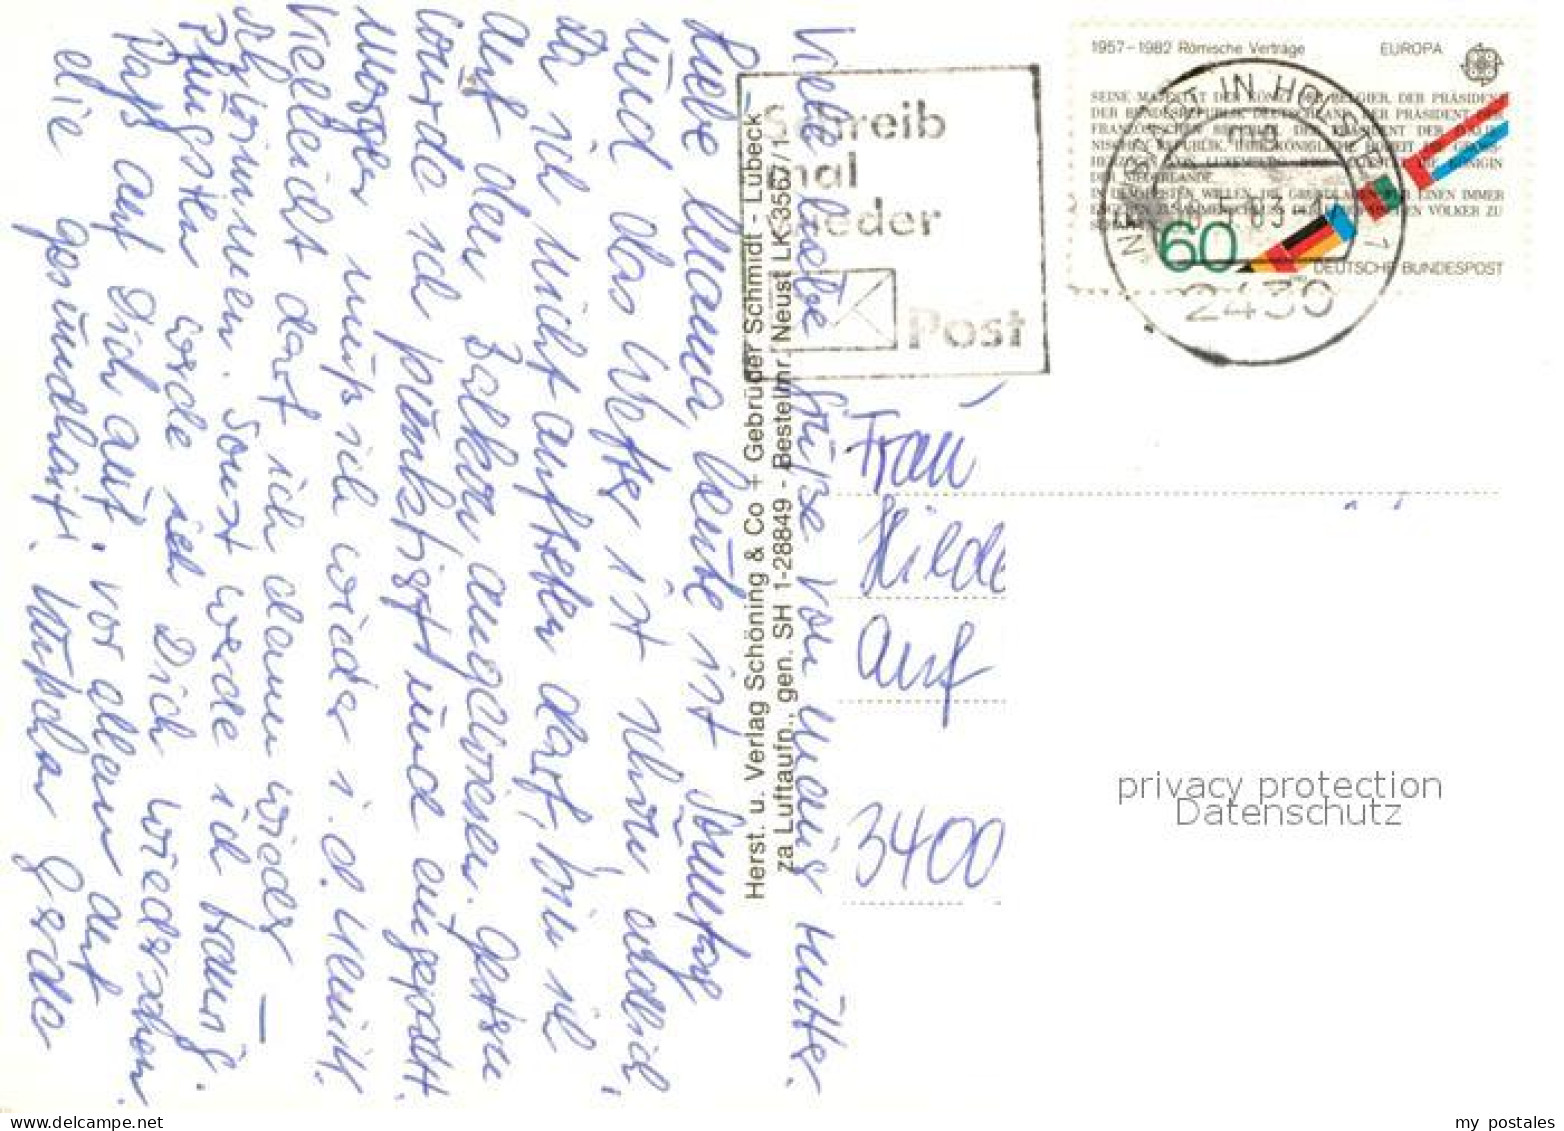 Liebe Mama heute ist Sonntag
und das Wetter ist schön, endlich,
da ich nicht aufstehen darf, bin ich
auf den Balkon angewiesen. Gestern
wurde ich punktiert und eingegipst.
Morgen muß ich wieder i. d. Klinik.
Vielleicht darf ich dann wieder
schwimmen. Sonst werde ich traurig.
Pfingsten werde ich Dich wiedersehen.
Paß auf Dich auf, vor allem auf
die Gesundheit. Küßchen Gerda
Viele liebe Grüße von Mutter.
Herst. u. Verlag Schöning & Co + Gebrüder Schmidt - Lübeck
za Luftaufn., gen. SH 1-28849 - Bestellnr. Neust LK 3567/1
Schreib
mal
wieder
Post
1957-1982 Römische Verträge EUROPA
SEINE MAJESTÄT DER KÖNIG DER BELGIER, DER PRÄSIDENT
DER BUNDESREPUBLIK DEUTSCHLAND, DER PRÄSIDENT DER
FRANZÖSISCHEN REPUBLIK, DER PRÄSIDENT DER ITALIE-
NISCHEN REPUBLIK, IHRE KÖNIGLICHE HOHEIT DIE GROSS-
HERZOGIN VON LUXEMBURG, IHRE MAJESTÄT DIE KÖNIGIN
DER NIEDERLANDE,
IN DEM FESTEN WILLEN, DIE GRUNDLAGEN FÜR EINEN IMMER
60
DEUTSCHE BUNDESPOST
NEUSTADT IN HOLSTEIN 1
2430
Frau
Hilde
Auf
3400
privacy protection
Datenschutz
my postales